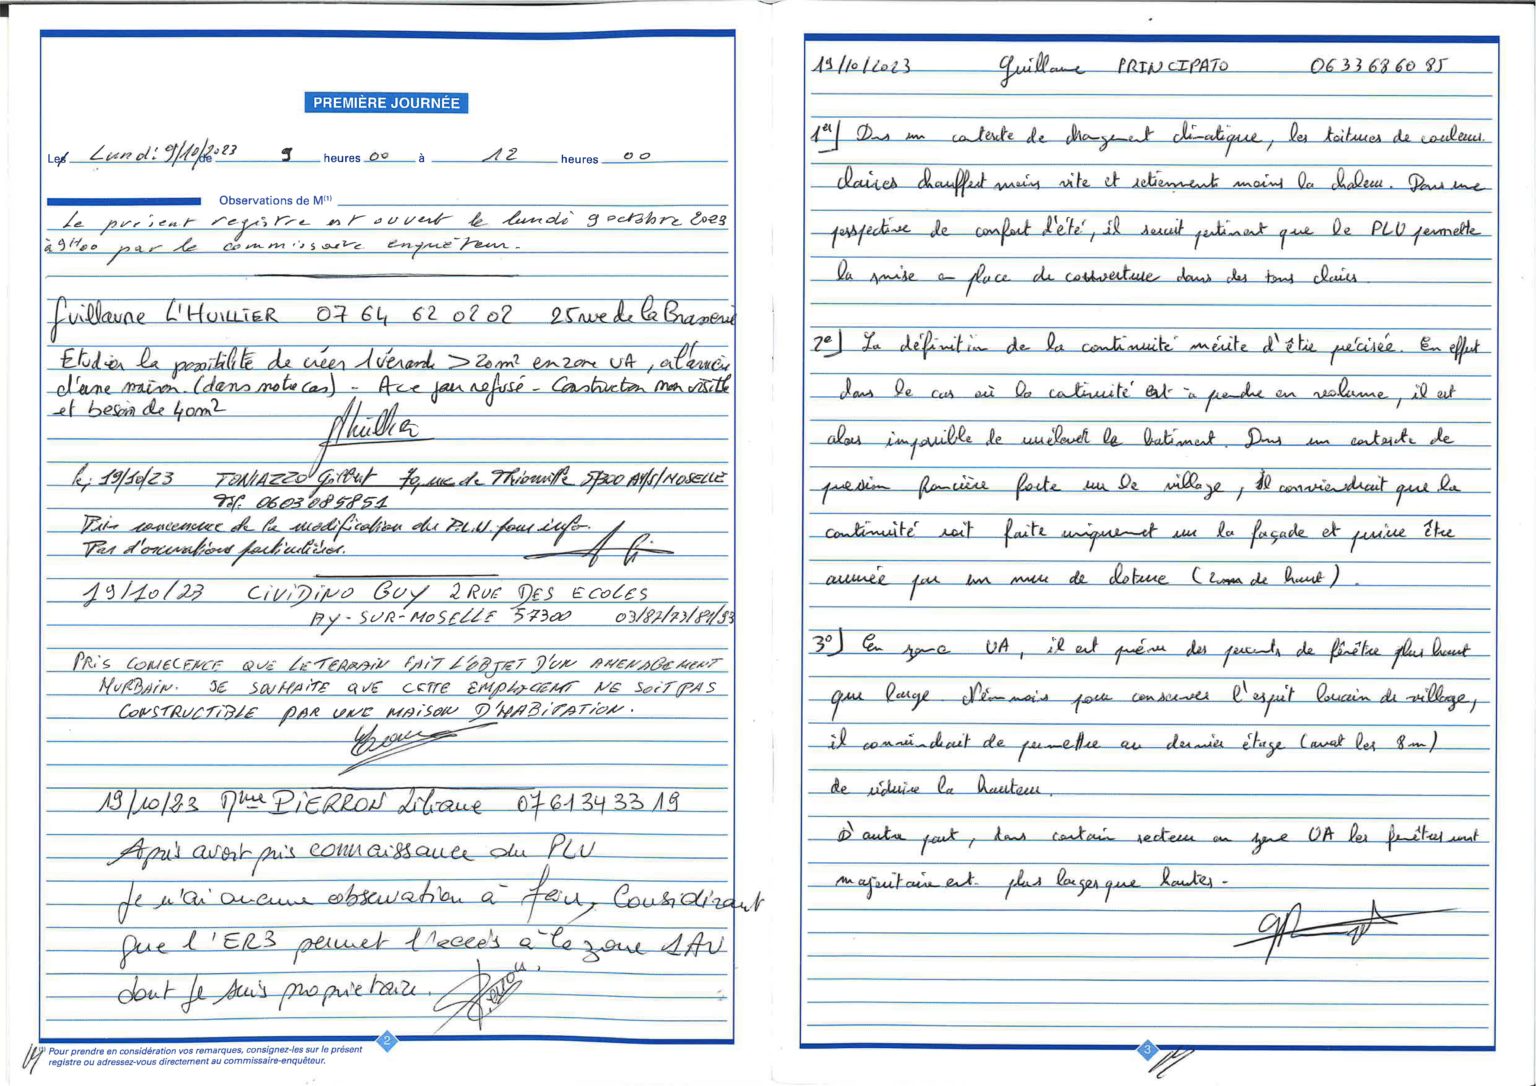 PREMIÈRE JOURNÉE
Les Lundi 9/10/2023 de 9 heures 00 à 12 heures 00
Observations de M(1)
Le présent registre est ouvert le lundi 9 octobre 2023
à 9H00 par le commissaire enquêteur.
Guillaume L'HUILLIER 07 64 62 02 02 25 rue de la Brasserie
Etudier la possibilité de créer 1 véranda > 20m² en zone UA, à l'arrière
d'une maison. (dans notre cas) - Ace jour refusé - Construction non visible
et besoin de 40m²
Lhuillier
le, 19/10/23 TONIAZZO Gilbert 70, rue de Thionville 57300 AY/S/MOSELLE
Tél. 0603085851
Pris connaissance de la modification du P.L.U. pour info.
Pas d'observations particulières.
19/10/23 CIVIDINO GUY 2 RUE DES ECOLES
AY-SUR-MOSELLE 57300 03/87/73/81/93
PRIS CONECENCE QUE LE TERRAIN FAIT L'OBJET D'UN AMENAGEMENT
MURBAIN. JE SOUHAITE QUE CETTE EMPLOCENT NE SOIT PAS
CONSTRUCTIBLE PAR UNE MAISON D'HABITATION.
19/10/23 Mme PIERRON Liliane 07 61 34 33 19
Après avoir pris connaissance du PLU
Je n'ai aucune observation à faire, Considérant
que l'ER3 permet l'accès à la zone 1AU
dont je suis propriétaire.
Pierron
2
(1) Pour prendre en considération vos remarques, consignez-les sur le présent
registre ou adressez-vous directement au commissaire-enquêteur.
19/10/2023 Guillaume PRINCIPATO 06 33 68 60 85
1er] Dans un contexte de changement climatique, les toitures de couleurs
claires chauffent moins vite et retiennent moins la chaleur. Dans une
perspective de confort d'été, il serait pertinent que le PLU permette
la mise en place de couverture dans des tons clairs.
2e] La définition de la continuité mérite d'être précisée. En effet
dans le cas où la continuité est à prendre en volume, il est
alors impossible de surélever le bâtiment. Dans un contexte de
pression foncière forte sur le village, il conviendrait que la
continuité soit faite uniquement sur la façade et puisse être
assurée par un mur de cloture (2m de haut).
3e] En zone UA, il est prévu des percements de fenêtre plus haut
que large. Néanmois pour conserver l'esprit lorrain du village,
il conviendrait de permettre au dernier étage (avant les 8m)
de réduire la hauteur.
D'autre part, dans certain secteur en zone UA les fenêtres sont
majoritairement plus larges que hautes.
3